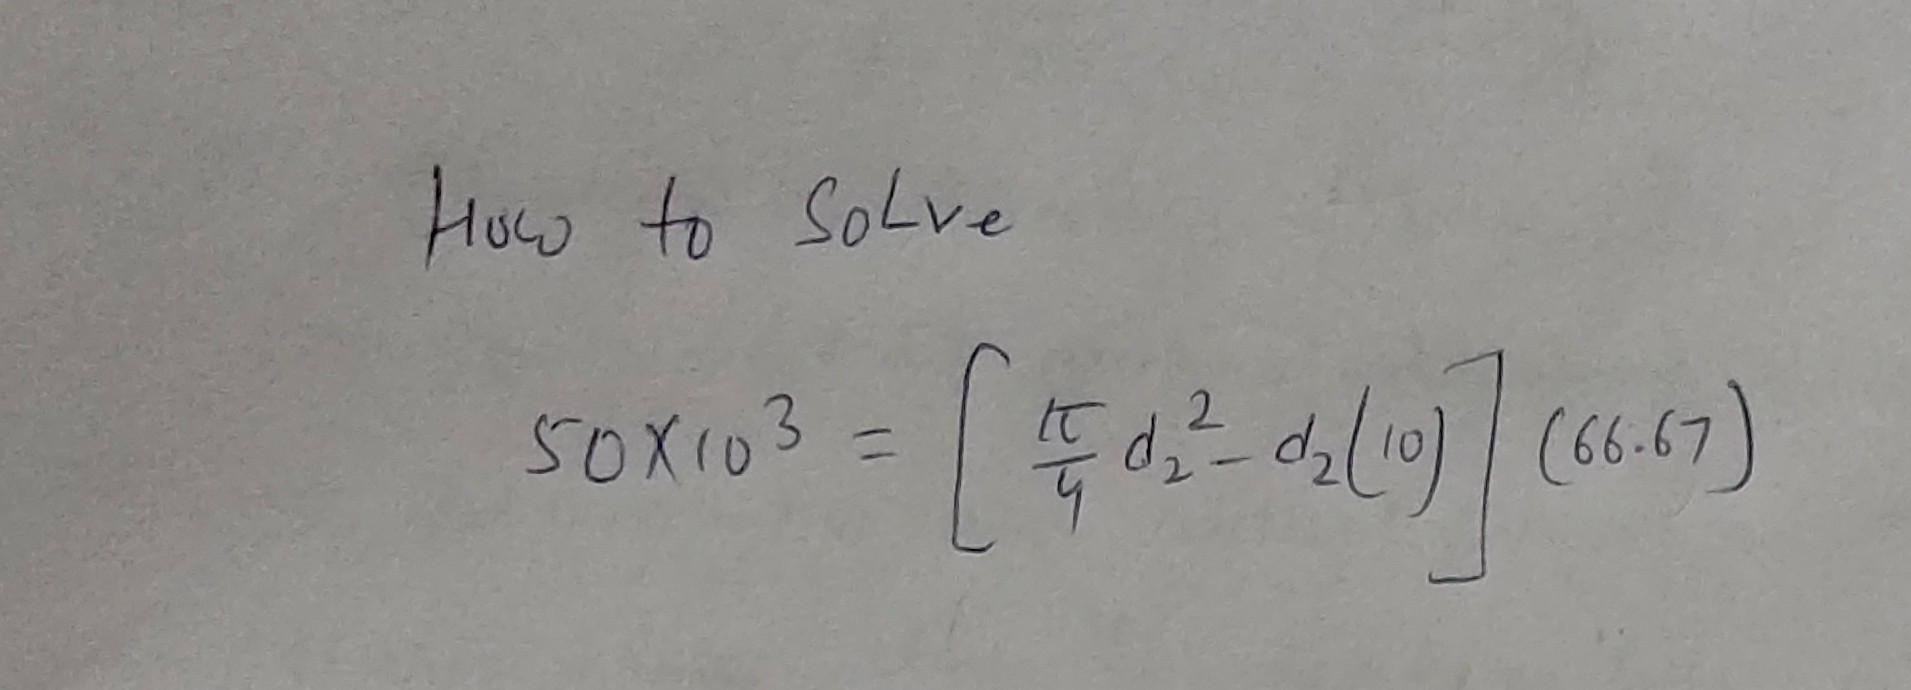 How to Solve
50×10³ = [π/4 d₂² - d₂(10)] (66.67)